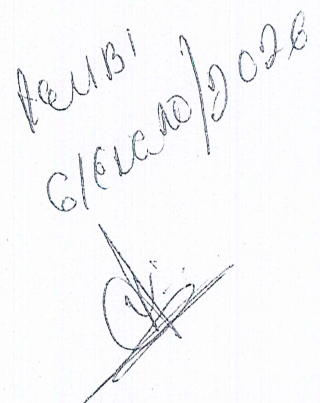 RECIBI
6/ENERO/2026